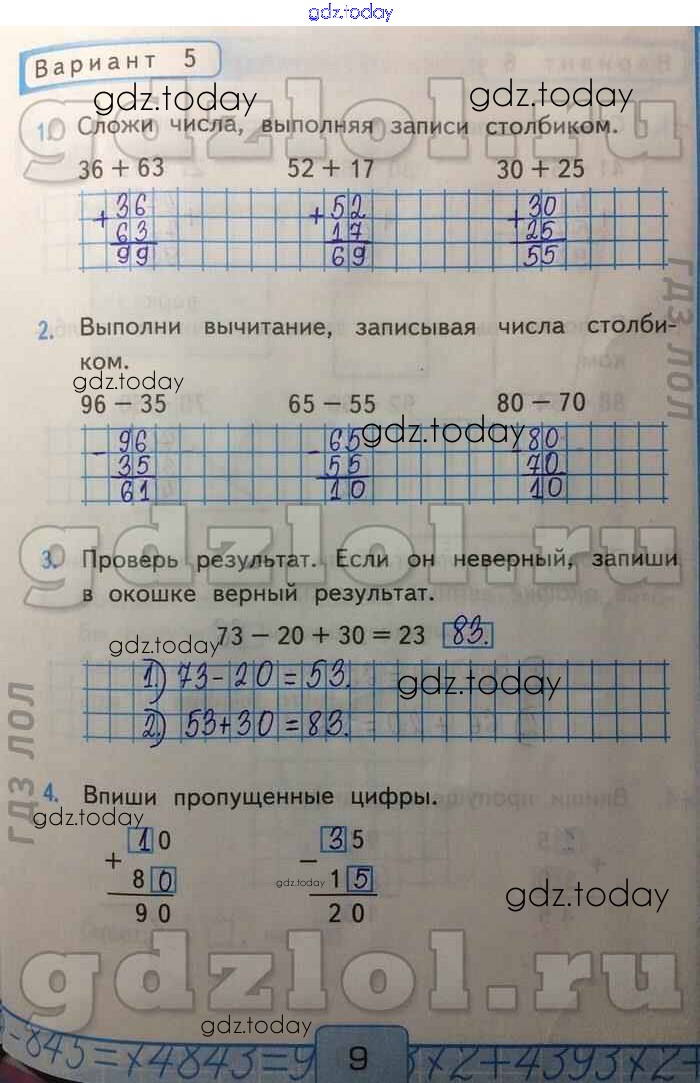 gdz.today
Вариант 5
gdz.today gdz.today
gdzlol.ru
1. Сложи числа, выполняя записи столбиком.
36 + 63 52 + 17 30 + 25
+ 36 + 52 + 30
63 17 25
99 69 55
гдз лол
2. Выполни вычитание, записывая числа столби-
ком.
gdz.today
96 − 35 65 − 55 80 − 70
gdz.today
− 96 − 65 − 80
35 55 70
61 10 10
gdzlol.ru
3. Проверь результат. Если он неверный, запиши
в окошке верный результат.
73 − 20 + 30 = 23 83.
gdz.today
1) 73 − 20 = 53.
gdz.today
2) 53 + 30 = 83.
гдз лол
4. Впиши пропущенные цифры.
gdz.today
+ 10 − 35
80 15
gdz.today
gdz.today
90 20
gdzlol.ru
gdz.today
-845=×4843=9 3×2+4393×2=
9